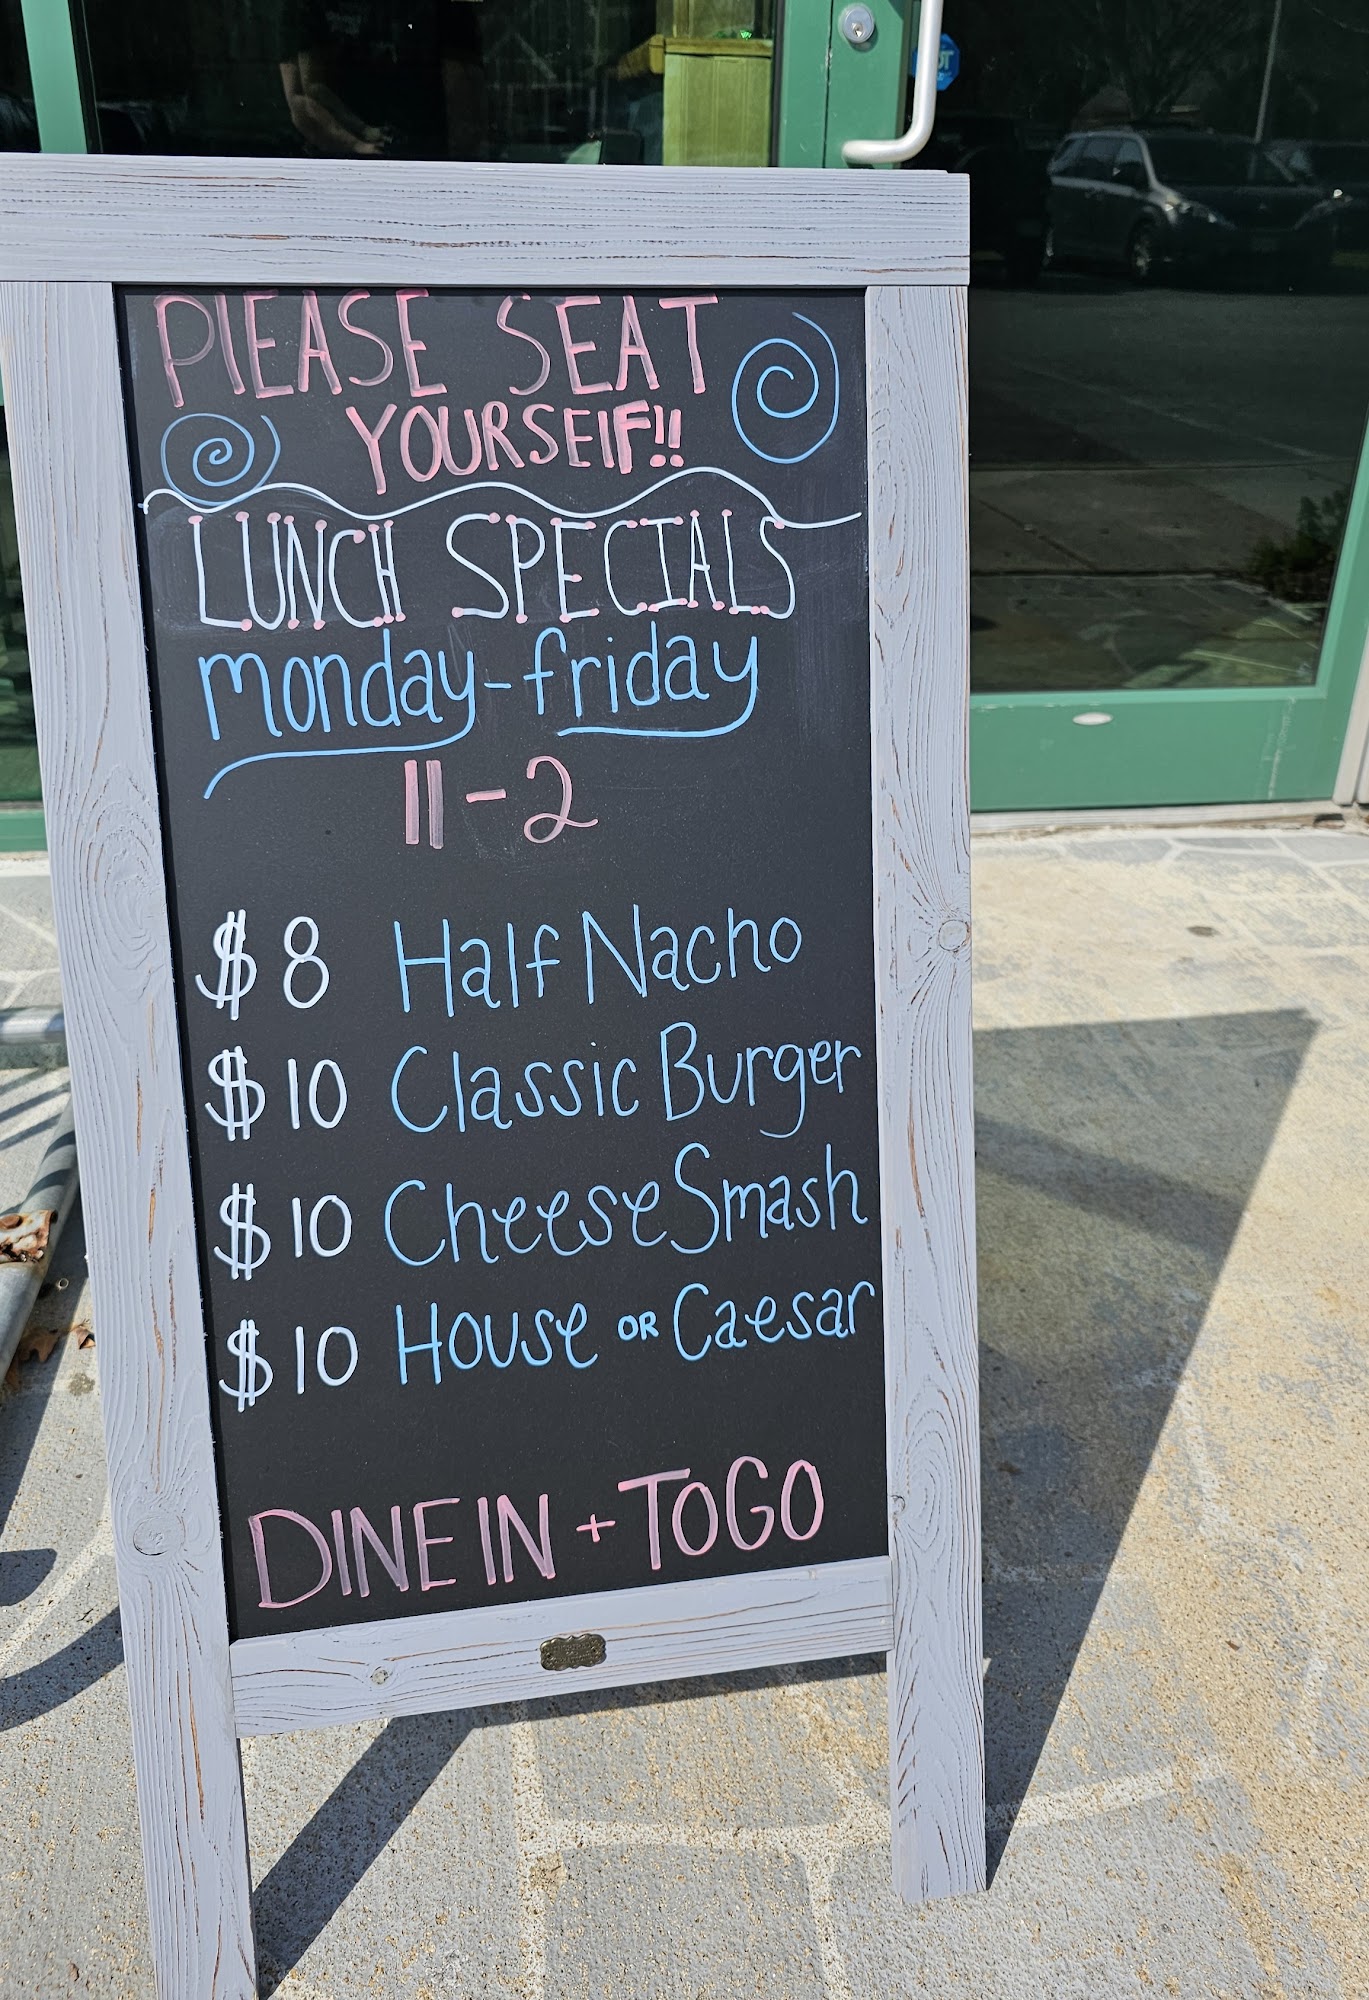 PLEASE SEAT
YOURSELF!!
LUNCH SPECIALS
monday-friday
11-2
$8 Half Nacho
$10 Classic Burger
$10 Cheese Smash
$10 House OR Caesar
DINE IN + TOGO